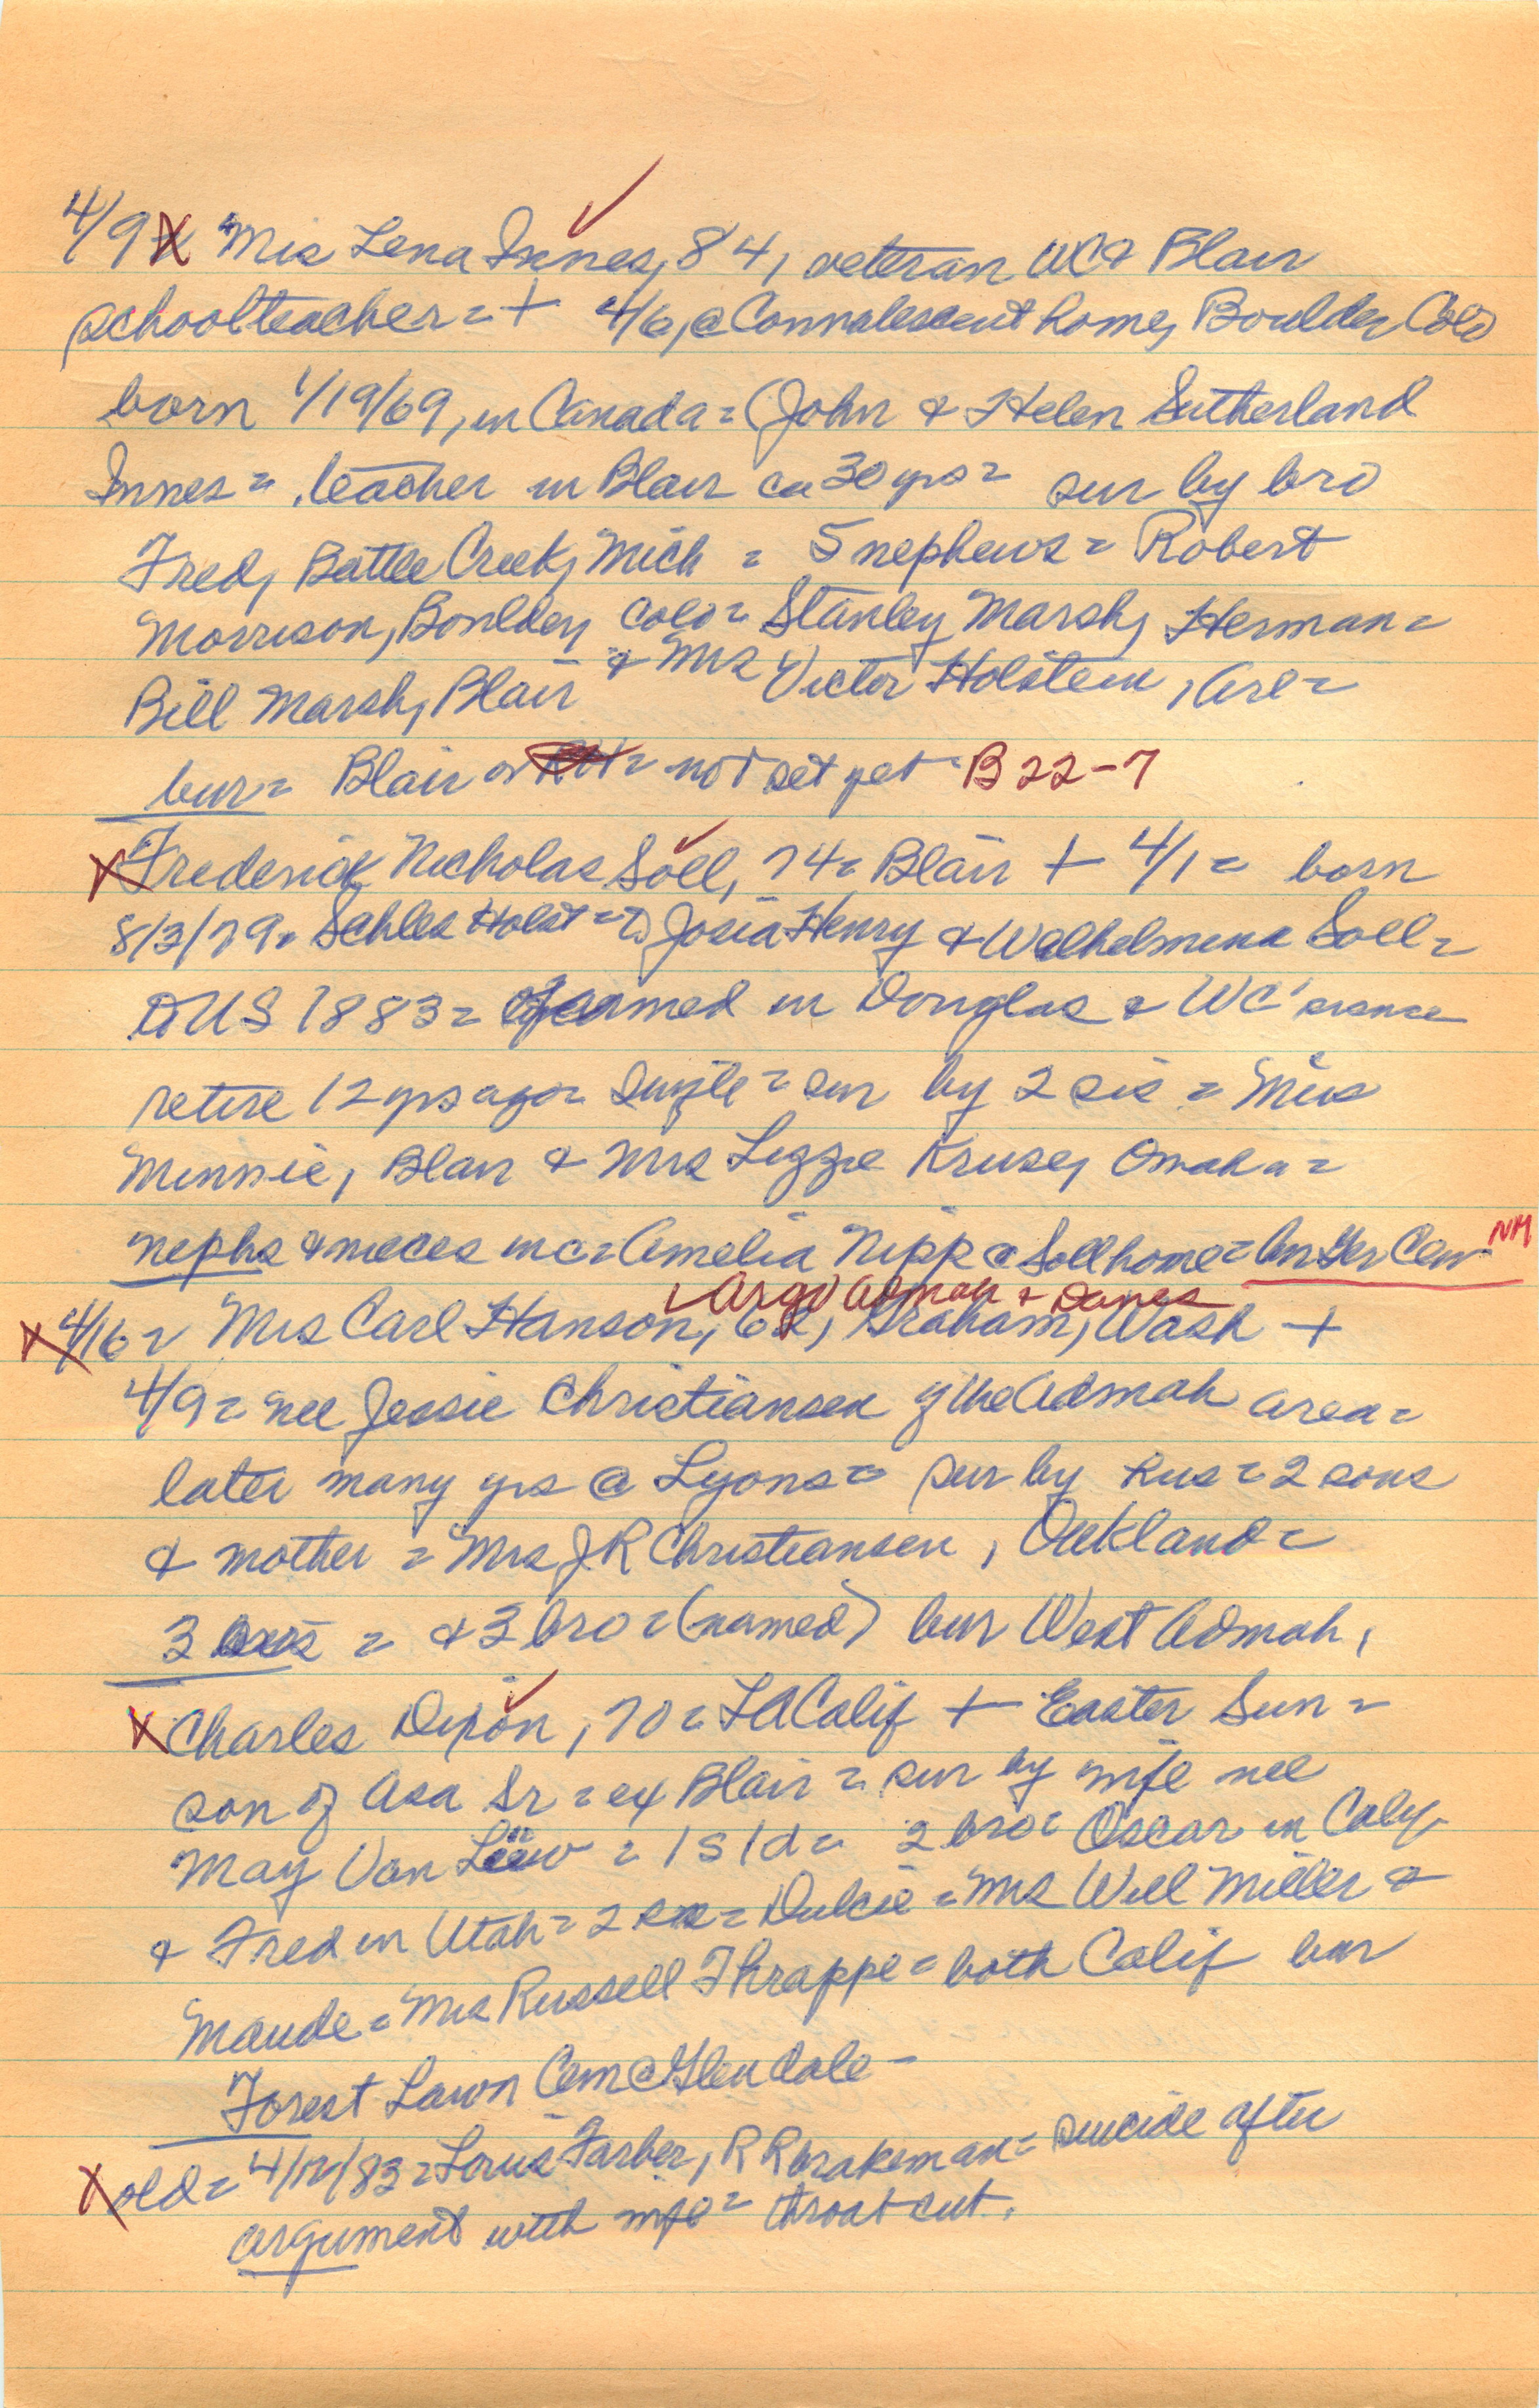 4/9 X Mis Lena Innes, 84, veteran WC & Blair
schoolteacher = + 4/6, @ Connalescent home, Boulder Colo
born 1/19/69, in Canada = (John & Helen Sutherland
Innes = teacher in Blair ca 30 yrs = sur by bro
Fred, Battle Creek, Mich = 5 nephews = Robert
Morrison, Boulder, Colo = Stanley Marsh, Herman =
Bill Marsh, Blair & Mrs Victor Holstein, Arl =
bur = Blair or not set yet B 22-7
X Frederick Nicholas Soll, 74 = Blair + 4/1 = born
8/3/79 = Schles Holst = to Josia Henry & Wilhelmina Soll =
to US 1883 = farmed in Douglas & WC' since
retire 12 yrs ago = single = sur by 2 sis = Miss
Minnie, Blair & Mrs Lizzie Kruse, Omaha =
nephs & nieces inc = Amelia Nipp @ Soll home = Ger Cem NM
✓ Argo Admah & Danes
X 4/16 = Mrs Carl Hanson, Graham, Wash +
4/9 = nee Jessie Christiansen of the Admah area =
later many yrs @ Lyons = sur by hus = 2 sons
& mother = Mrs J R Christiansen, Oakland =
3 sis = & 3 bro = (named) bur West Admah,
X Charles Dixon, 70 = LA Calif + Easter Sun =
son of Asa Sr = ex Blair = sur by wife nee
May Van = 1 s 1 d = 2 bro = Oscar in Calif,
& Fred in Utah = 2 sis = Dulcie = Mrs Will Miller &
Maude = Mrs Russell Thrappe = both Calif bur
Forest Lawn Cem @ Glendale -
X old = 4/12/83 = Louis Farber, RR brakeman = suicide after
argument with wife = throat cut.